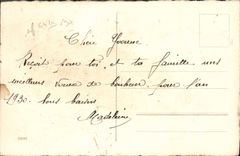 Chère Yvonne
Reçois pour toi et ta famille mes
meilleurs voeux de bonheur pour l'an
1930. bons baisers
Madeleine